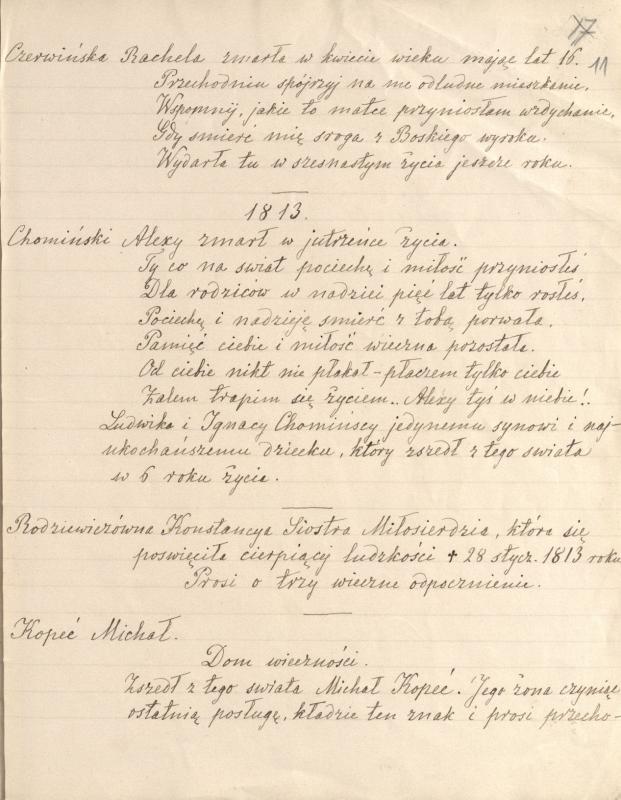 17
11
Czerwińska Rachela zmarła w kwiecie wieku mając lat 16.
Przechodniu spójrzyj na me odludne mieszkanie.
Wspomnij, jakie to matce przyniosłam wzdychanie,
Gdy śmierć mię sroga z Boskiego wyroku.
Wydarła tu w szesnastym życia jeszcze roku.
1813.
Chomiński Alexy zmarł w jutrzeńce życia.
Ty co na świat pociechę i miłość przyniosłeś
Dla rodziców w nadziei pięć lat tylko rosłeś,
Pociechę i nadzieję śmierć z tobą porwała,
Pamięć ciebie i miłość wieczna pozostała.
Od ciebie nikt nie płakał – płaczem tylko ciebie
Żalem trapim się życiem.. Alexy tyś w niebie!.
Ludwika i Ignacy Chomińscy jedynemu synowi i naj-
ukochańszemu dziecku, który zszedł z tego świata
w 6 roku życia.
Rodziewiczówna Konstancya Siostra Miłosierdzia, która się
poswięciła cierpiącej ludzkości + 28 stycz. 1813 roku
Prosi o trzy wieczne odpocznienie.
Kopeć Michał.
Dom wieczności.
Zszedł z tego świata Michał Kopeć. Jego żona czyniąc
ostatnią posługę, kładzie ten znak i prosi przecho-